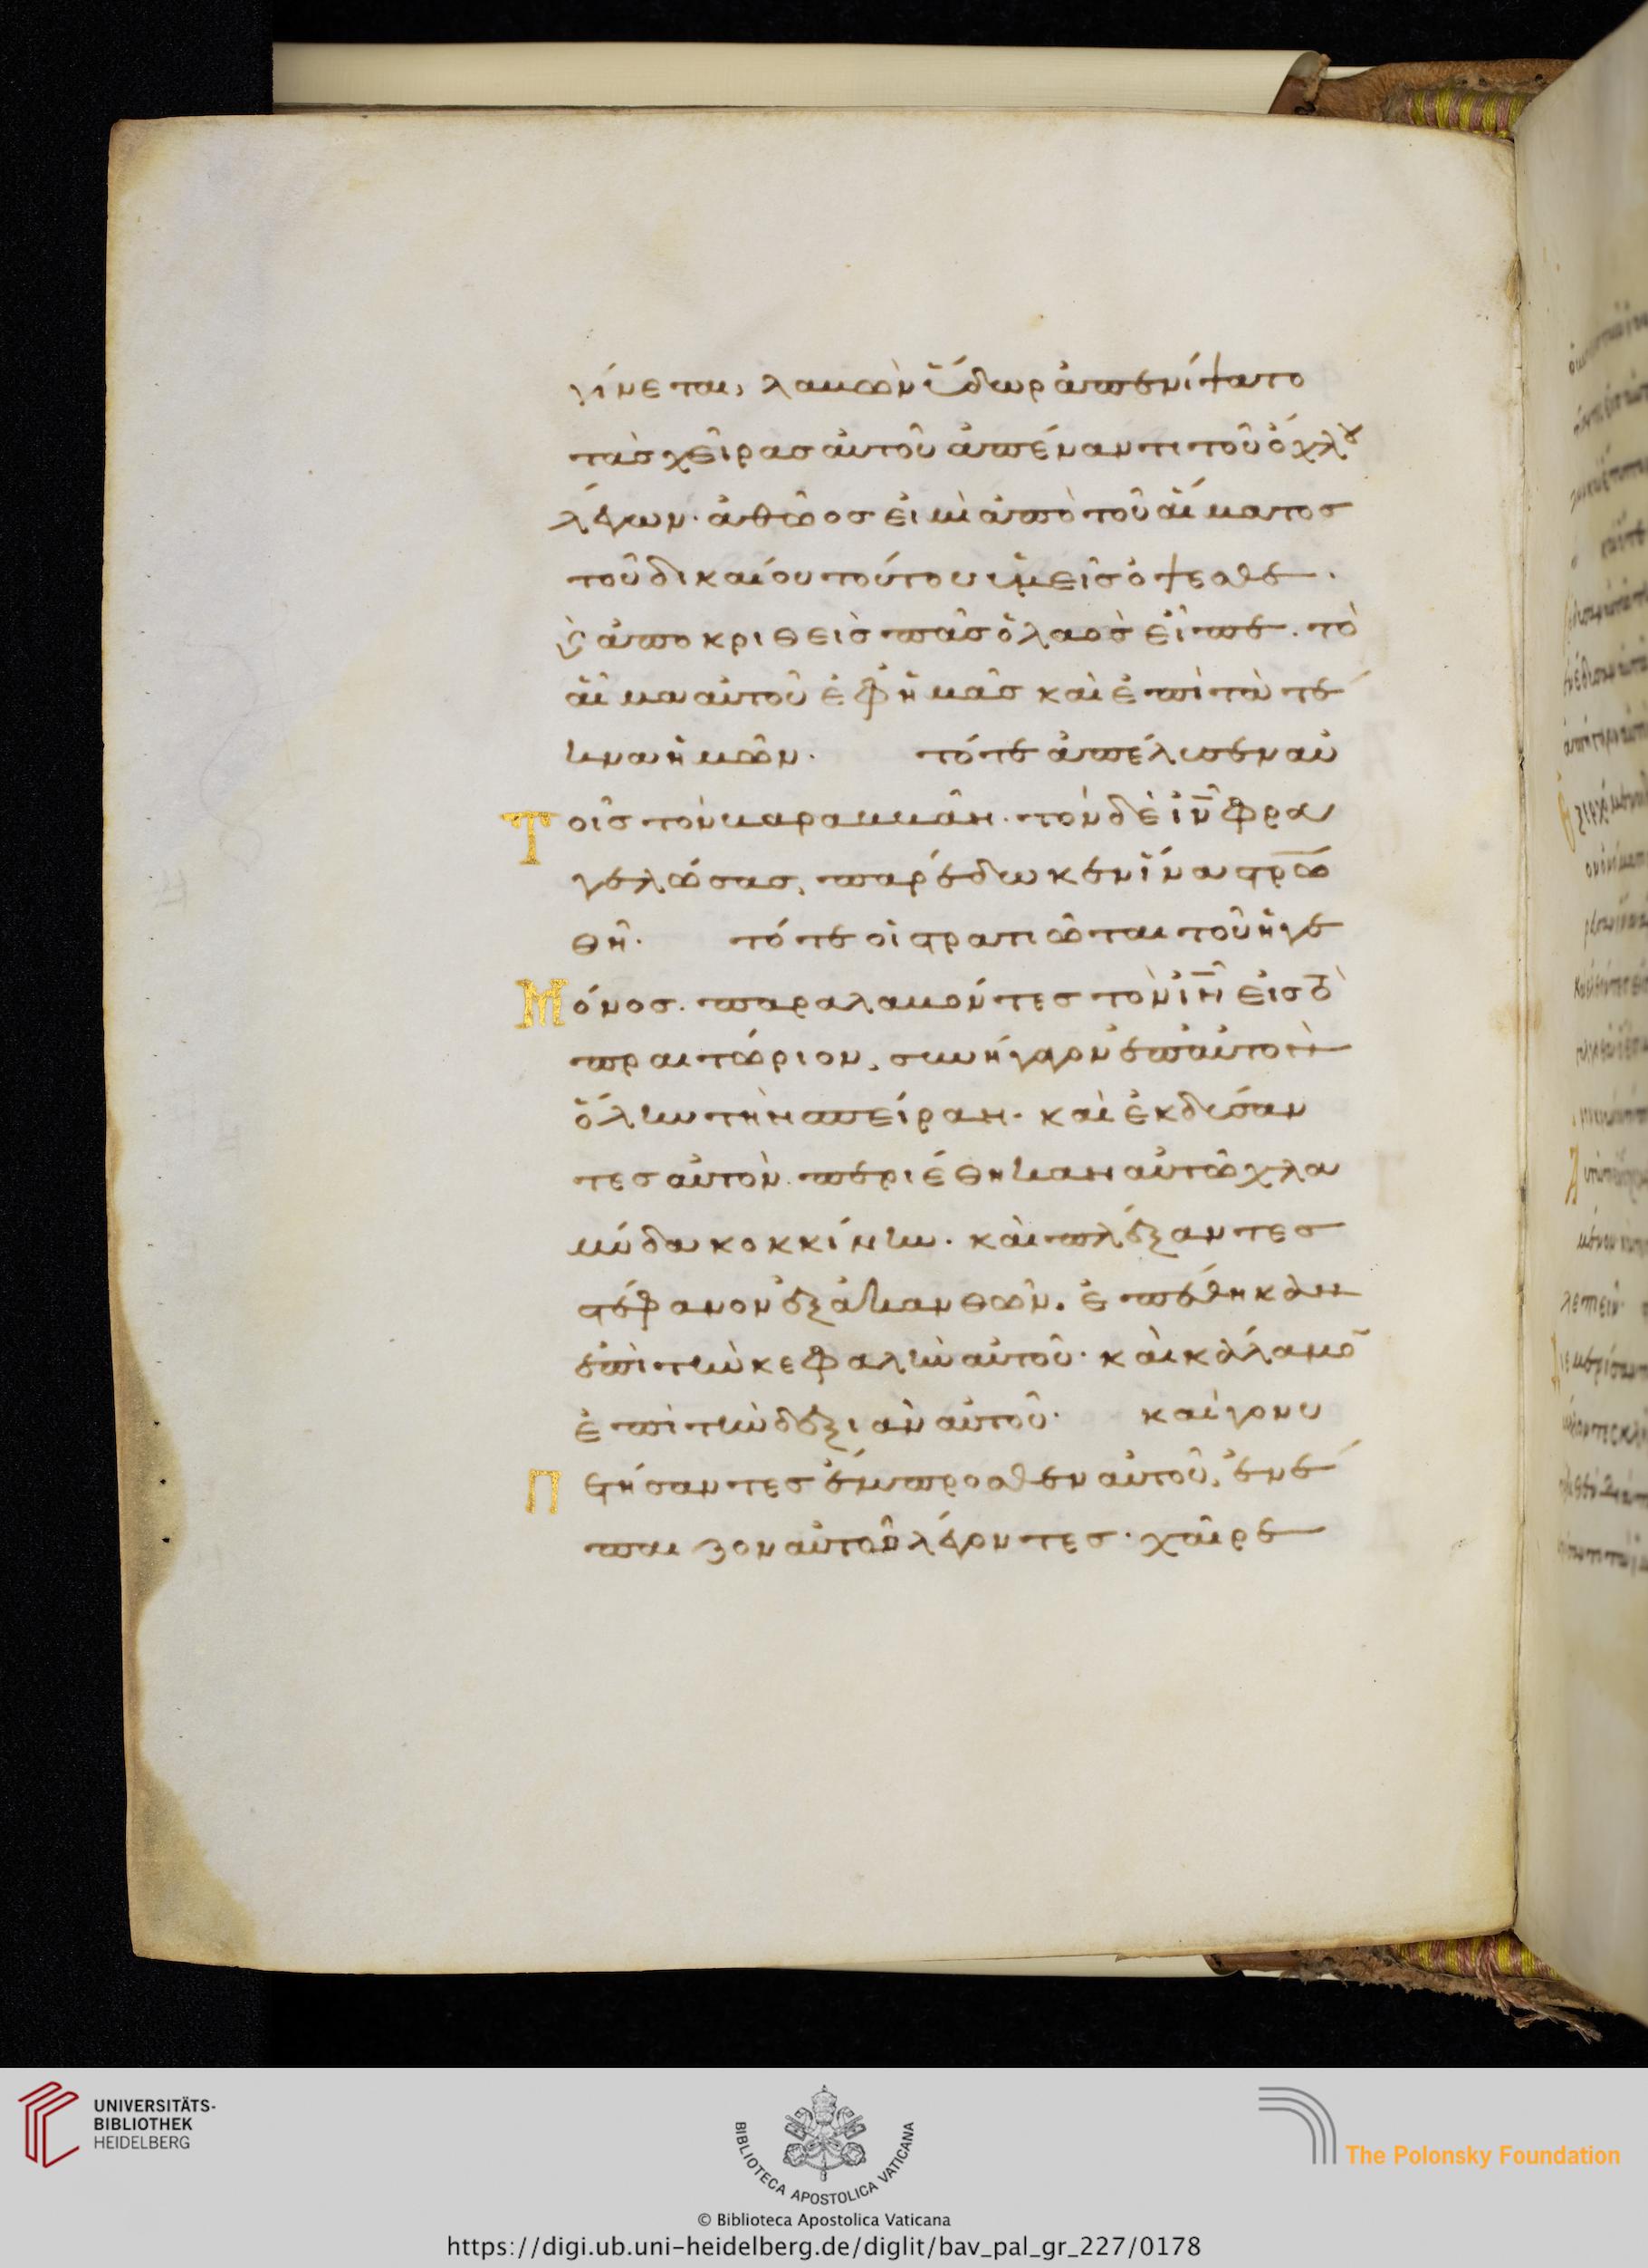 γίνεται, λαβὼν ὕδωρ ἀπενίψατο
τὰς χεῖρας αὐτοῦ ἀπέναντι τοῦ ὄχλου
λέγων· ἀθῶος εἰμὶ ἀπὸ τοῦ αἵματος
τοῦ δικαίου τούτου ὑμεῖς ὄψεσθε·
καὶ ἀποκριθεὶς πᾶς ὁ λαὸς εἶπε· τὸ
αἷμα αὐτοῦ ἐφ ἡμᾶς καὶ ἐπὶ τὰ τέ
κνα ἡμῶν· τότε ἀπέλυσεν αὐ
Τοῖς τὸν βαραββᾶν· τὸν δὲ ιν φρα
γελώσας, παρέδωκεν ἵνα στρω
θῆ· τότε οἱ στρατιῶται τοῦ ἡγε
Μόνος· παραλαβόντες τὸν ιν εἰς τὸ
πραιτώριον, συνήγαγον ἐπ αὐτὸν
ὅλην τὴν σπείραν· καὶ ἐκδύσαν
τες αὐτὸν· περιέθηκαν αὐτῶ χλα
μύδα κοκκίνην· καὶ πλέξαντες
στέφανον ἐξ ἀκανθῶν, ἐπέθηκαν
ἐπὶ τὴν κεφαλὴν αὐτοῦ· καὶ κάλαμο̄
ἐπὶ τὴν δεξιὰν αὐτοῦ· καὶ γονυ
Πετήσαντες ἔμπροσθεν αὐτοῦ, ἐνέ
παιζον αὐτὸν λέγοντες· χαῖρε
UNIVERSITÄTS-
BIBLIOTHEK
HEIDELBERG
BIBLIOTECA APOSTOLICA VATICANA
The Polonsky Foundation
© Biblioteca Apostolica Vaticana
https://digi.ub.uni-heidelberg.de/diglit/bav_pal_gr_227/0178